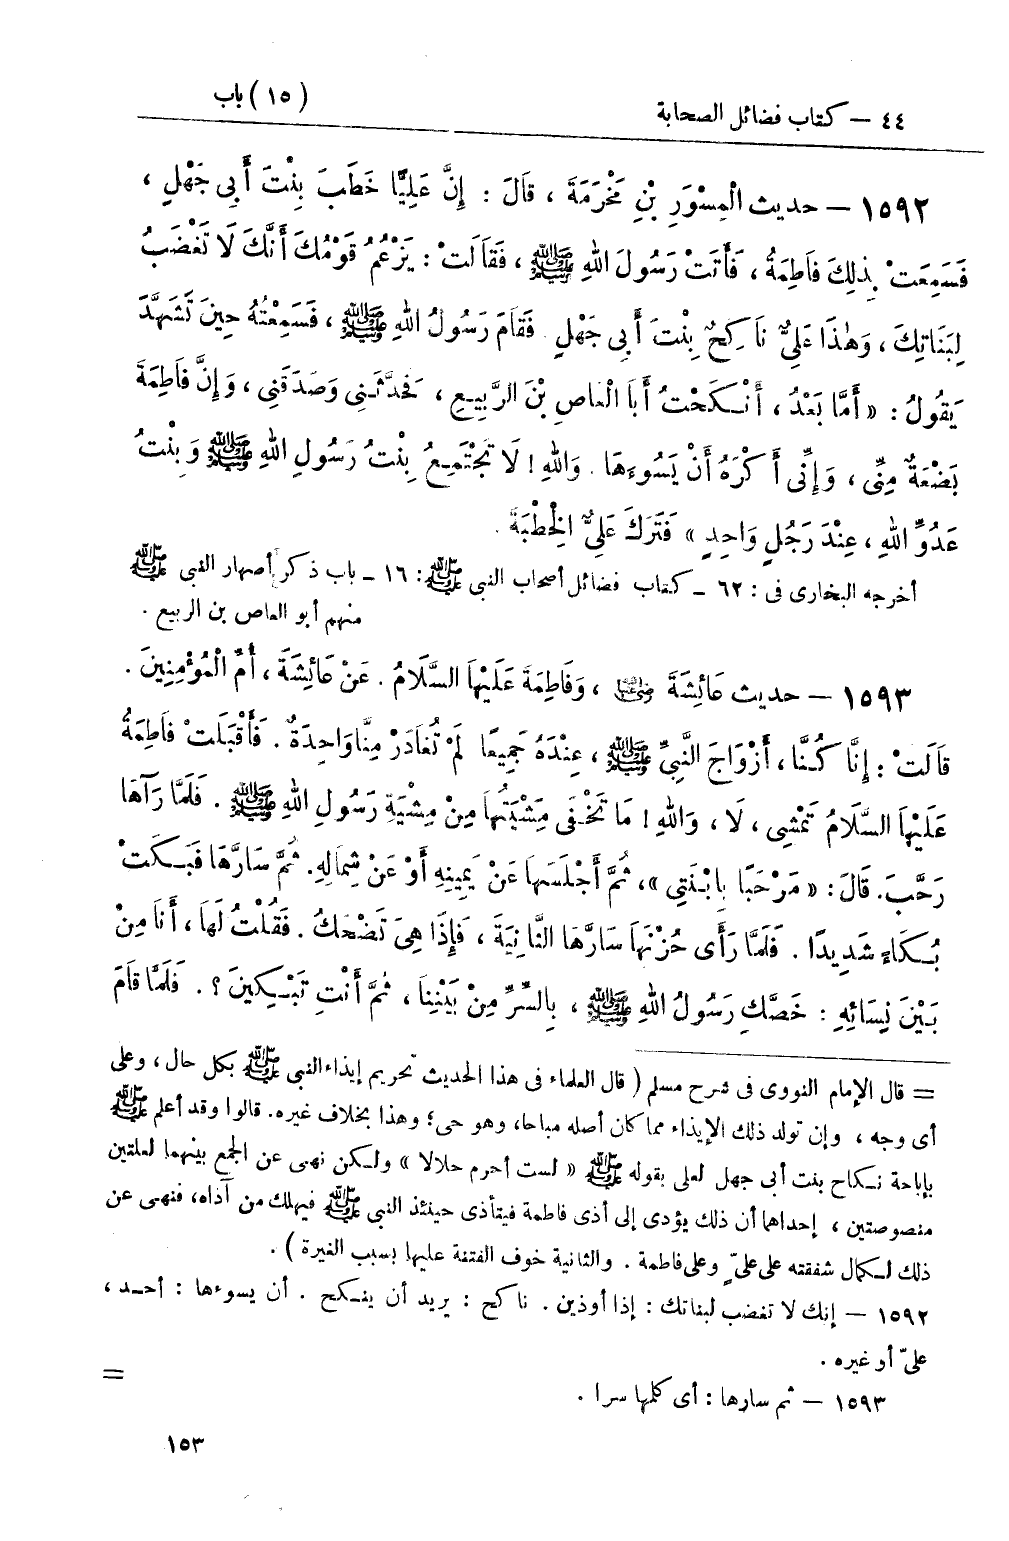 ٤٤ — كتاب فضائل الصحابة
(١٥) باب
١٥٩٢ — حديث الْمِسْوَرِ بْنِ مَخْرَمَةَ ، قَالَ : إِنَّ عَلِيًّا خَطَبَ بِنْتَ أَبِي جَهْلٍ ،
فَسَمِعَتْ بِذلِكَ فَاطِمَةُ ، فَأَتَتْ رَسُولَ اللهِ ﷺ ، فَقَالَتْ : يَزْعُمُ قَوْمُكَ أَنَّكَ لَا تَغْضَبُ
لِبَنَاتِكَ ، وَهٰذَا عَلِيٌّ نَاكِحٌ بِنْتَ أَبِي جَهْلٍ . فَقَامَ رَسُولُ اللهِ ﷺ ، فَسَمِعْتُهُ حِينَ تَشَهَّدَ
يَقُولُ : « أَمَّا بَعْدُ ، أَنْكَحْتُ أَبَا الْعَاصِ بْنَ الرَّبِيعِ ، فَحَدَّثَنِي وَصَدَقَنِي ، وَإِنَّ فَاطِمَةَ
بَضْعَةٌ مِنِّي ، وَإِنِّي أَكْرَهُ أَنْ يَسُوءَهَا . وَاللهِ ! لَا تَجْتَمِعُ بِنْتُ رَسُولِ اللهِ ﷺ وَبِنْتُ
عَدُوِّ اللهِ ، عِنْدَ رَجُلٍ وَاحِدٍ » فَتَرَكَ عَلِيٌّ الْخِطْبَةَ .
أخرجه البخاري في : ٦٢ – كتاب فضائل أصحاب النبي ﷺ : ١٦ – باب ذكر أصهار النبي ﷺ
منهم أبو العاص بن الربيع .
١٥٩٣ — حديث عَائِشَةَ رضي الله عنها ، وَفَاطِمَةَ عَلَيْهَا السَّلَامُ . عَنْ عَائِشَةَ ، أُمِّ الْمُؤْمِنِينَ .
قَالَتْ : إِنَّا كُنَّا ، أَزْوَاجَ النَّبِيِّ ﷺ ، عِنْدَهُ جَمِيعًا لَمْ تُغَادَرْ مِنَّا وَاحِدَةٌ . فَأَقْبَلَتْ فَاطِمَةُ
عَلَيْهَا السَّلَامُ تَمْشِي ، لَا ، وَاللهِ ! مَا تَخْفَى مَشْيَتُهَا مِنْ مِشْيَةِ رَسُولِ اللهِ ﷺ . فَلَمَّا رَآهَا
رَحَّبَ . قَالَ : « مَرْحَبًا بِابْنَتِي » ، ثُمَّ أَجْلَسَهَا عَنْ يَمِينِهِ أَوْ عَنْ شِمَالِهِ . ثُمَّ سَارَّهَا فَبَكَتْ
بُكَاءً شَدِيدًا . فَلَمَّا رَأَى حُزْنَهَا سَارَّهَا الثَّانِيَةَ ، فَإِذَا هِيَ تَضْحَكُ . فَقُلْتُ لَهَا ، أَنَا مِنْ
بَيْنَ نِسَائِهِ : خَصَّكِ رَسُولُ اللهِ ﷺ ، بِالسِّرِّ مِنْ بَيْنِنَا ، ثُمَّ أَنْتِ تَبْكِينَ ؟ . فَلَمَّا قَامَ
= قال الإمام النووي في شرح مسلم ( قال العلماء في هذا الحديث تحريم إيذاء النبي ﷺ بكل حال ، وعلى
أي وجه ، وإن تولد ذلك الإيذاء مما كان أصله مباحا، وهو حي؛ وهذا بخلاف غيره. قالوا وقد أعلم ﷺ
بإباحة نكاح بنت أبي جهل لعلي بقوله ﷺ « لست أحرم حلالا » ولكن نهى عن الجمع بينهما لعلتين
منصوصتين ، إحداهما أن ذلك يؤدي إلى أذى فاطمة فيتأذى حينئذ النبي ﷺ فيهلك من آذاه، فنهى عن
ذلك لكمال شفقته على عليّ وعلى فاطمة . والثانية خوف الفتنة عليها بسبب الغيرة ) .
١٥٩٢ — إنك لا تغضب لبناتك : إذا أوذين . ناكح : يريد أن ينكح . أن يسوءها : أحد ،
عليّ أو غيره .
١٥٩٣ — ثم سارها : أي كلمها سرا .
=
١٥٣